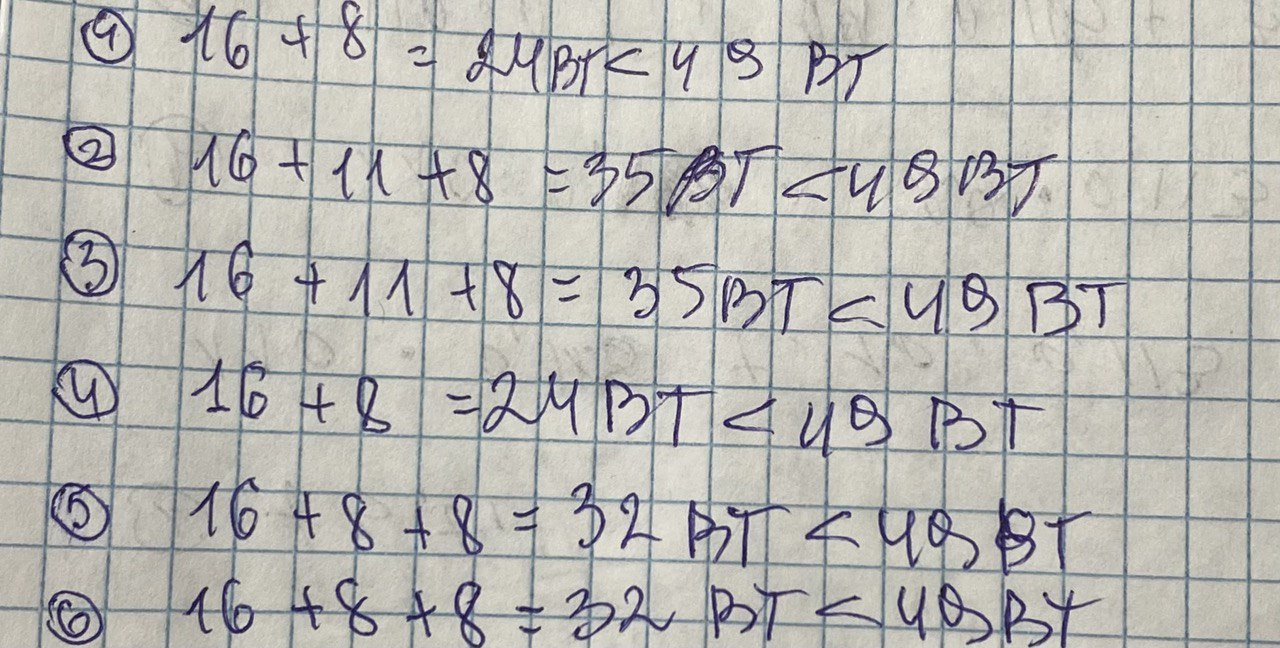 ① 16 + 8 = 24 Вт < 49 Вт
② 16 + 11 + 8 = 35 Вт < 49 Вт
③ 16 + 11 + 8 = 35 Вт < 49 Вт
④ 16 + 8 = 24 Вт < 49 Вт
⑤ 16 + 8 + 8 = 32 Вт < 49 Вт
⑥ 16 + 8 + 8 = 32 Вт < 49 Вт